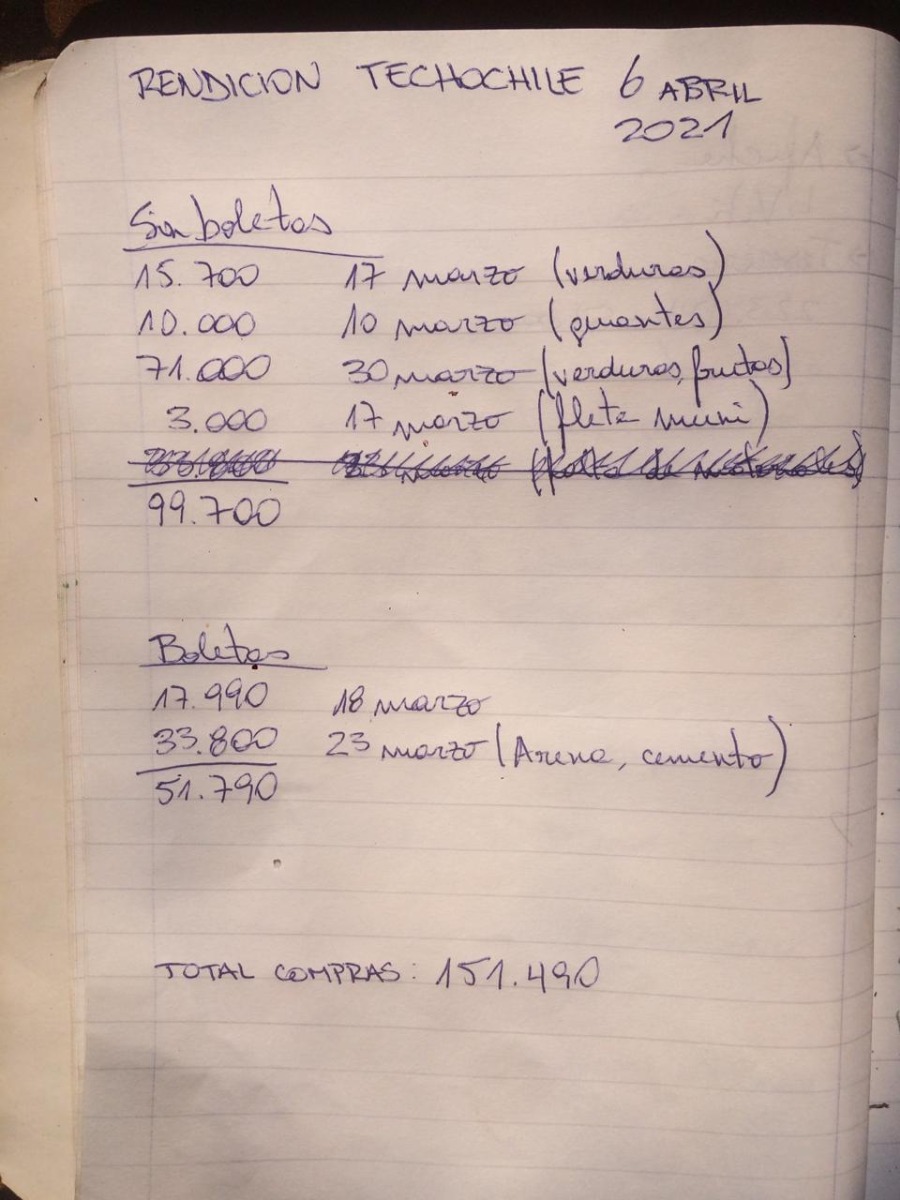 RENDICION TECHOCHILE 6 ABRIL
2021
Sin boletas
15.700 17 marzo (verduras)
10.000 10 marzo (guantes)
71.000 30 marzo (verduras, frutas)
3.000 17 marzo (flete muni)
99.700
Boletas
17.990 18 marzo
33.800 23 marzo (Arena, cemento)
51.790
TOTAL COMPRAS: 151.490